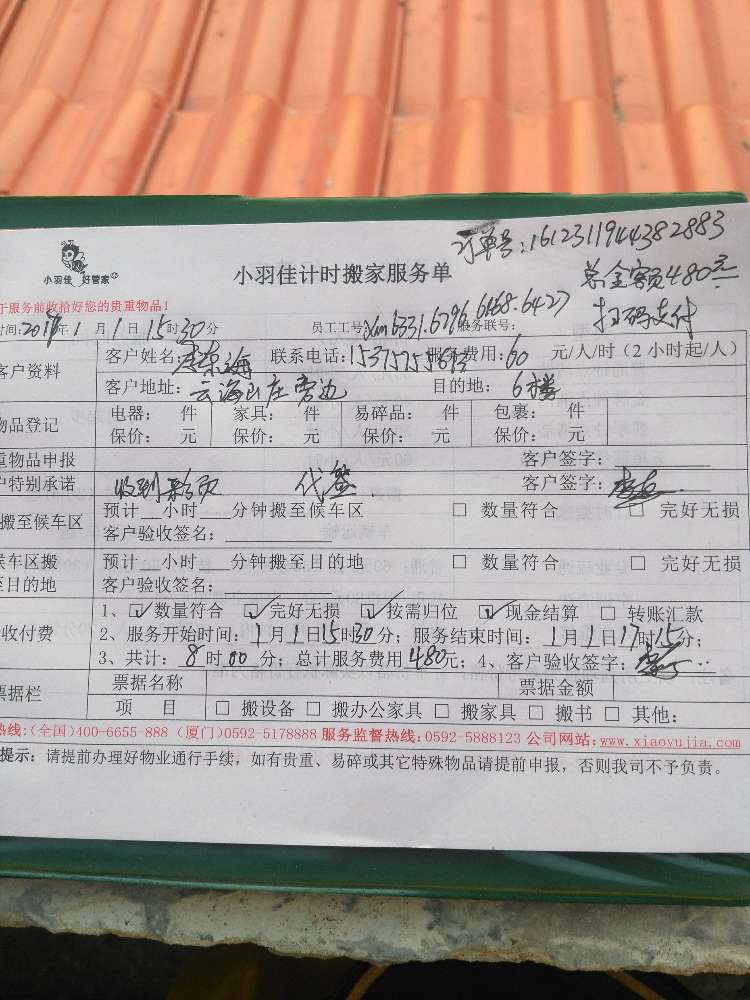 订单号:1612311944382883
小羽佳 好管家
小羽佳计时搬家服务单
总金额480元
扫码支付
于服务前收拾好您的贵重物品!
时间:20 年1月1日15时30分 员工工号:xm6331.6796.6168.6427 服务联号:
客户资料
客户姓名: 联系电话: 服务费用:60 元/人/时(2小时起/人)
客户地址:云海山庄旁边 目的地:6楼
物品登记
电器: 件 家具: 件 易碎品: 件 包裹: 件
保价: 元 保价: 元 保价: 元 保价: 元
重物品申报 客户签字:
户特别承诺 收到彩页 代签 客户签字:
搬至候车区
预计 小时 分钟搬至候车区 □ 数量符合 □ 完好无损
客户验收签名:
候车区搬
至目的地
预计 小时 分钟搬至目的地 □ 数量符合 □ 完好无损
客户验收签名:
收付费
1、☑数量符合 ☑完好无损 ☑按需归位 ☑现金结算 □ 转账汇款
2、服务开始时间:1月1日15时30分;服务结束时间:1月1日17时15分;
3、共计:8时00分;总计服务费用480元;4、客户验收签字:
票据栏
票据名称 票据金额
项 目 □ 搬设备 □ 搬办公家具 □ 搬家具 □ 搬书 □ 其他:
热线:(全国)400-6655-888(厦门)0592-5178888 服务监督热线:0592-5888123 公司网站:www.xiaoyujia.com
提示:请提前办理好物业通行手续,如有贵重、易碎或其它特殊物品请提前申报,否则我司不予负责。